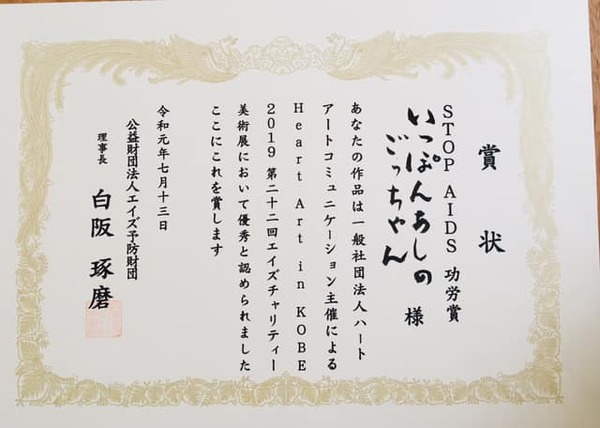 賞状
STOP AIDS 功労賞
いっぽんあしの
ごっちゃん 様
あなたの作品は一般社団法人ハート
アートコミュニケーション主催による
Heart Art in KOBE
2019 第二十二回エイズチャリティー
美術展において優秀と認められました
ここにこれを賞します
令和元年七月十三日
公益財団法人エイズ予防財団
理事長 白阪 琢磨